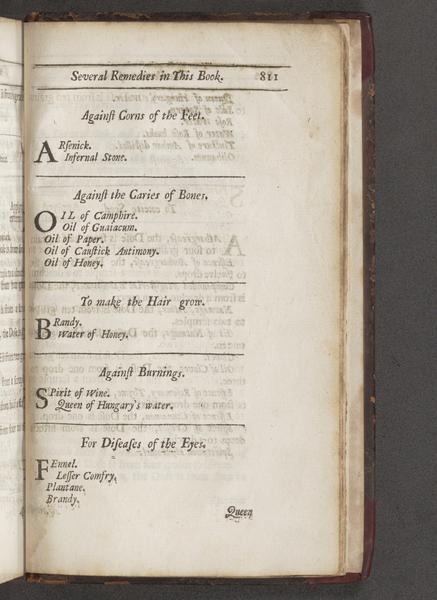 Several Remedies in This Book. 811
Againſt Corns of the Feet.
ARſenick.
Infernal Stone.
Againſt the Caries of Bones.
OIL of Camphire.
Oil of Guaiacum.
Oil of Paper.
Oil of Cauſtick Antimony.
Oil of Honey.
To make the Hair grow.
BRandy.
Water of Honey.
Againſt Burnings.
SPirit of Wine.
Queen of Hungary's water.
For Diſeaſes of the Eyes.
FEnnel.
Leſſer Comfry,
Plantane.
Brandy.
Queen